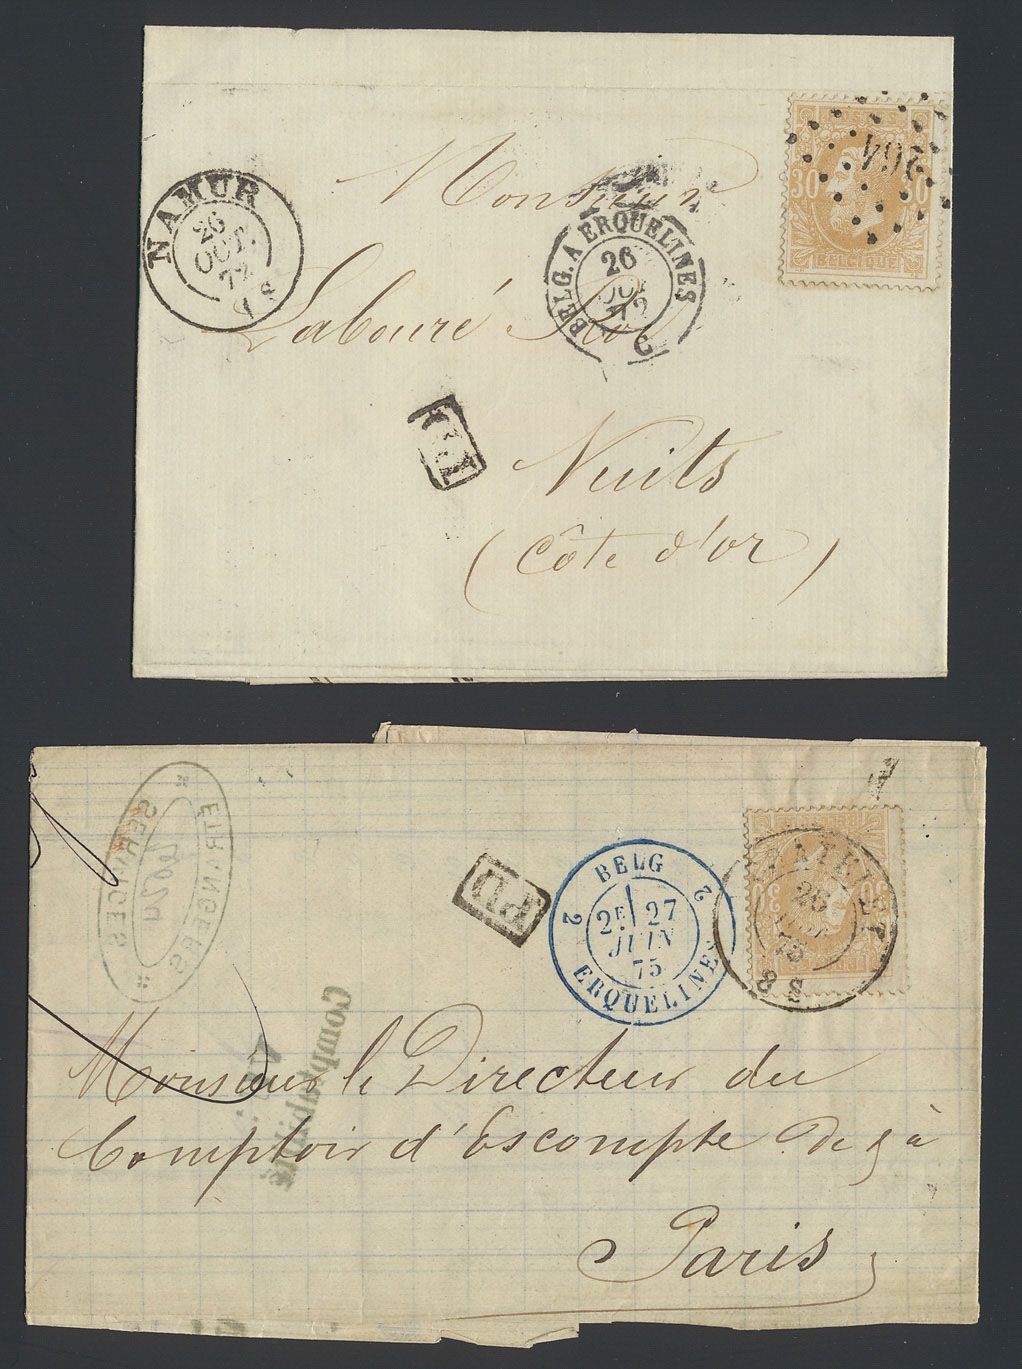 NAMUR
26
OCT.
72
BELG. A ERQUELINES
26
OCT
72
C
30 30
BELGIQUE
264
Monsieur
Labouré
PD
Nuits
(Côte d'or)
ETRANGERS
SERVICES
PD
BELG
2 2
2E 27
JUIN
75
ERQUELINES
30 30
26
75
Comptabilité
Monsieur le Directeur du
Comptoir d'Escompte de
à
Paris